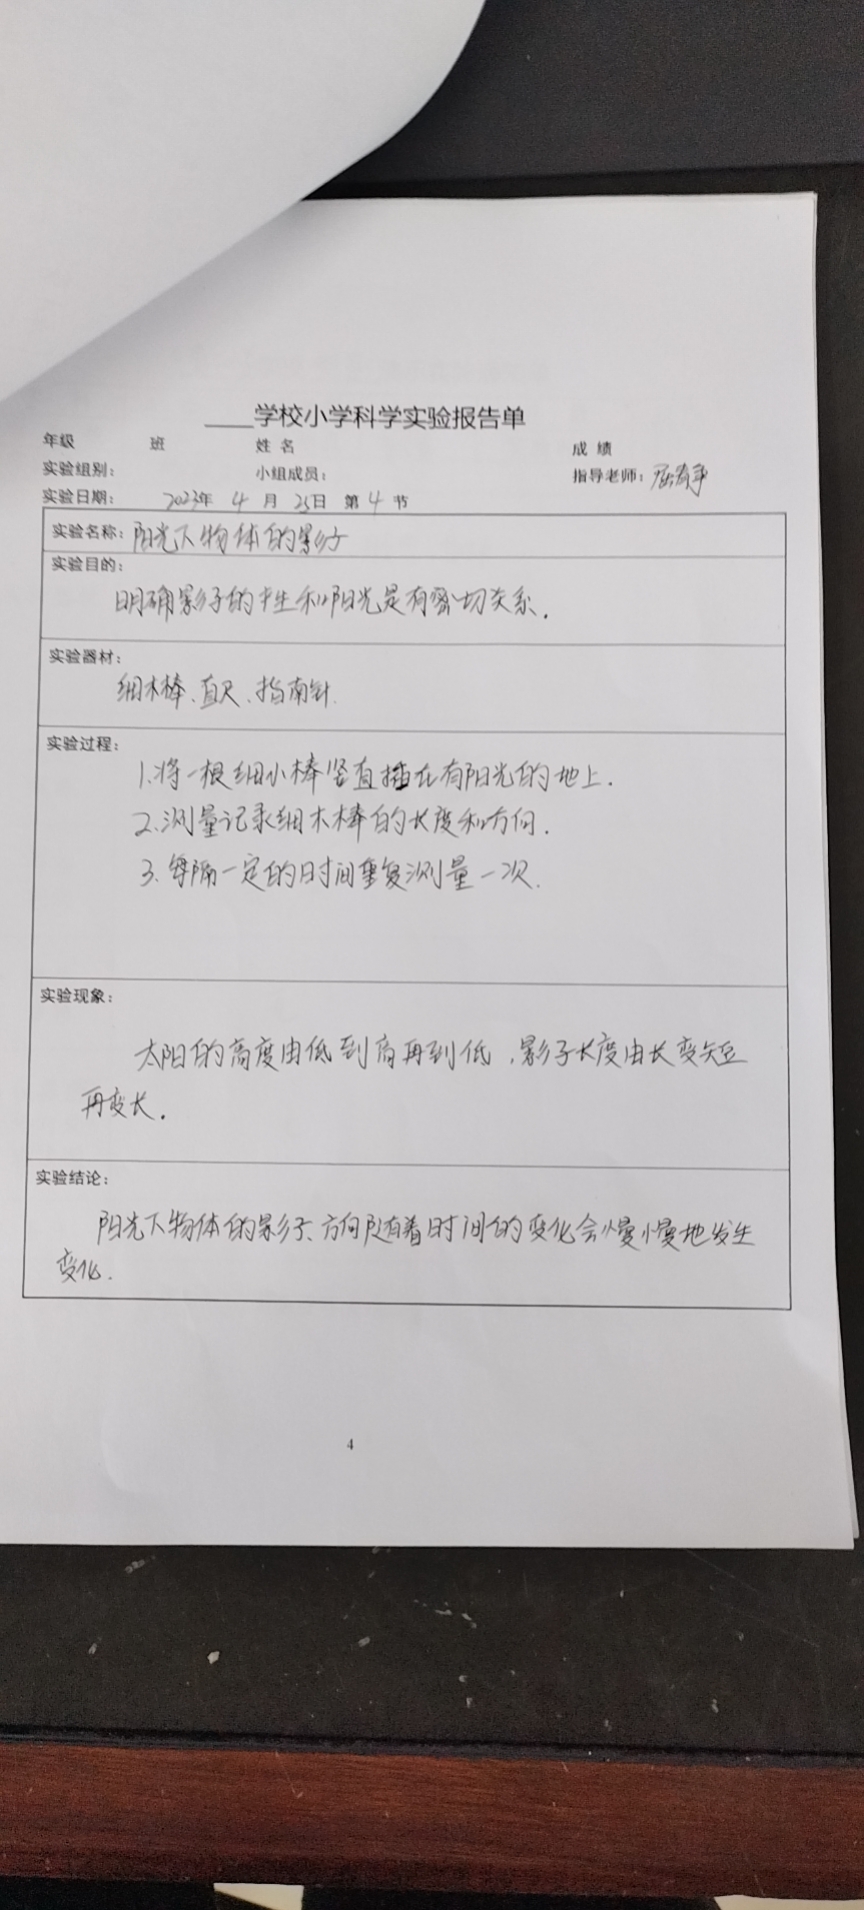 ____学校小学科学实验报告单
年级 班 姓名 成绩
实验组别： 小组成员： 指导老师：
实验日期： 2023年 4 月 25日 第 4 节
实验名称：阳光下物体的影子
实验目的：
明确影子的产生和阳光是有密切关系.
实验器材：
细木棒、直尺、指南针.
实验过程：
1.将一根细小棒竖直插在有阳光的地上.
2.测量记录细木棒的长度和方向.
3.每隔一定的时间重复测量一次.
实验现象：
太阳的高度由低到高再到低，影子长度由长变短
再变长.
实验结论：
阳光下物体的影子、方向随着时间的变化会慢慢地发生
变化.
4